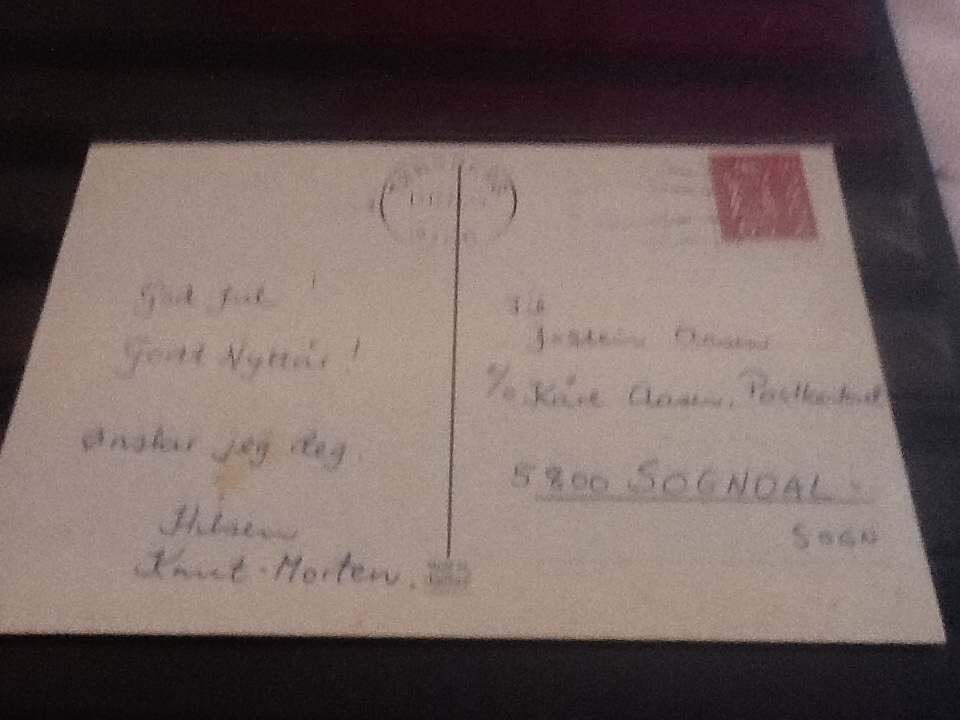 God Jul !
Godt Nyttår !
Ønsker jeg deg.
Hilsen
Knut-Morten.
Til
Jostein Aasen
c/o Kåre Aasen, Postkontoret
5800 SOGNDAL -
SOGN